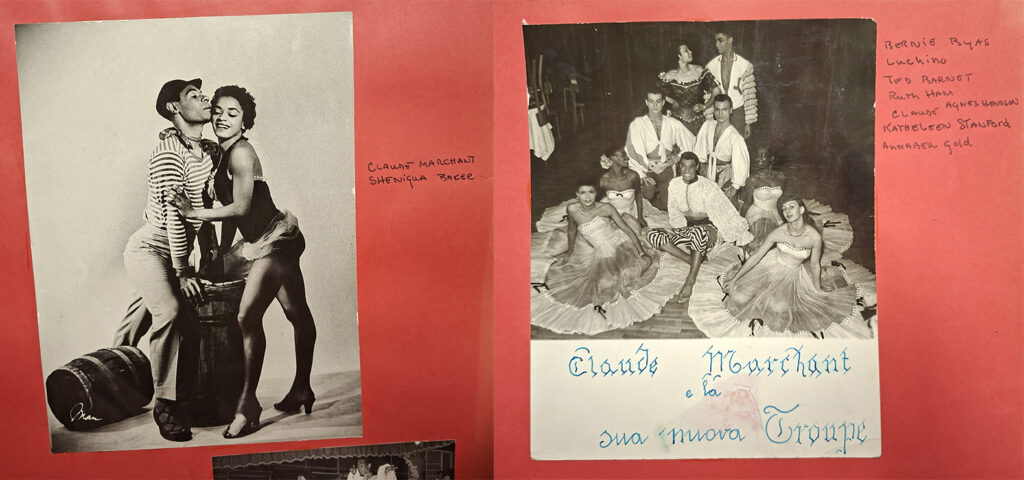 CLAUDE MARCHANT
SHENIQUA BAKER
BERNIE BYAS
Luchino
TED BARNET
Ruth HAM
CLAUDE AGNES HENDSON
KATHELEEN STANFORD
ANNABELL Gold
Claude Marchant
e la
sua nuova Troupe